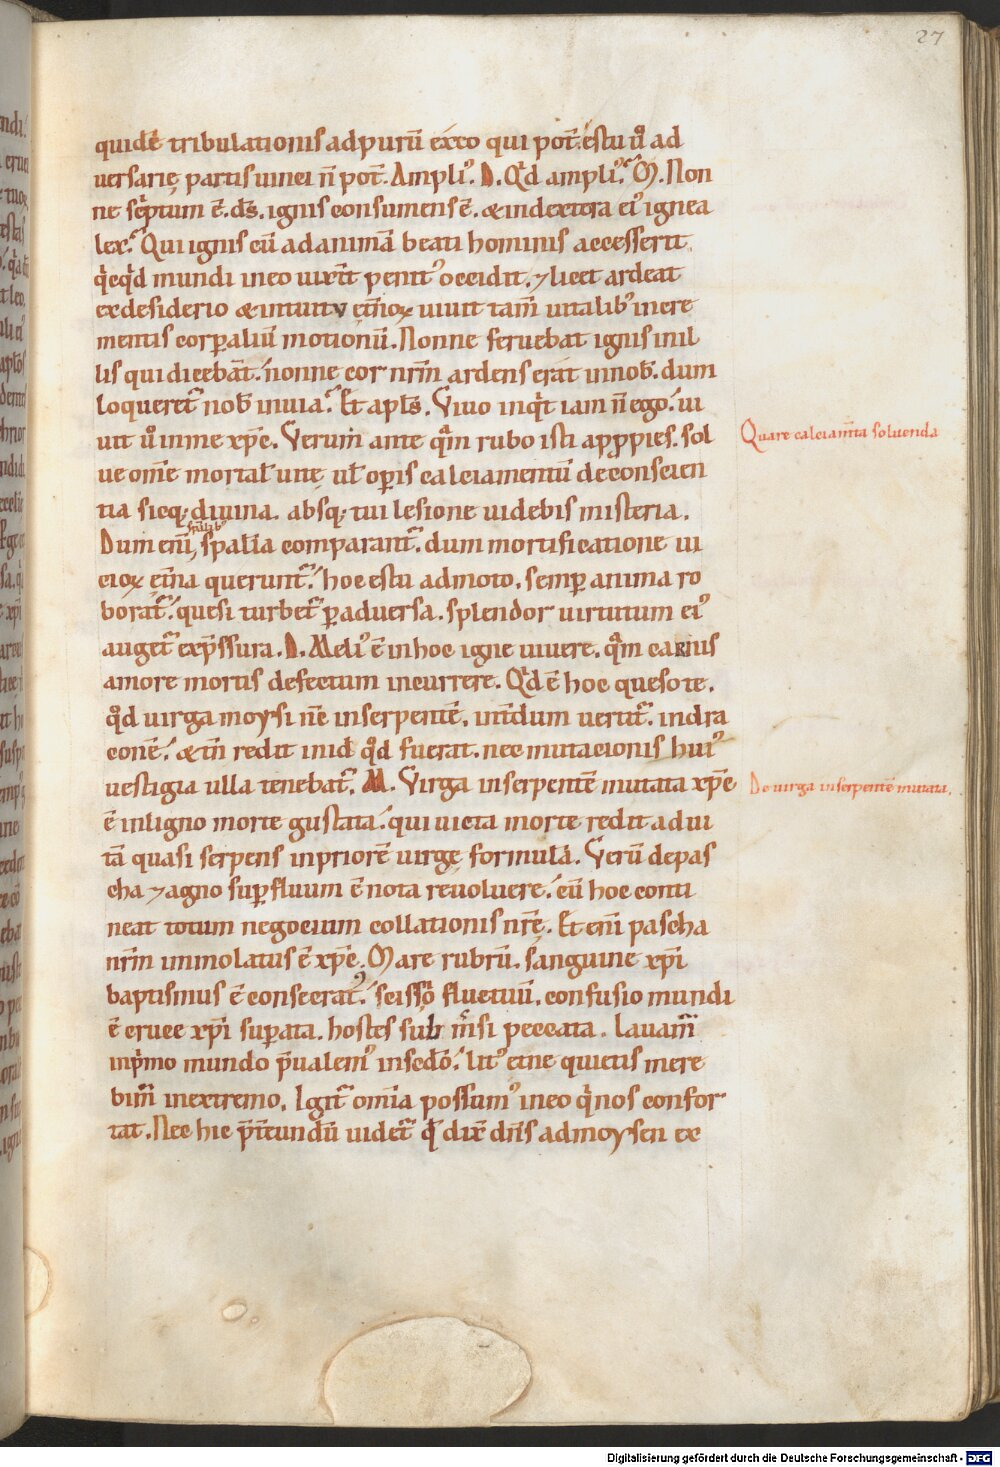 27
quidē tribulationis adpurū excō qui pot̄. ēstu ů ad
uersarię partis uinci n̄ pot̄. Ampliꝰ. D. Qͥd ampliꝰ. M. Non
ne scͥptum ē. ds̄. ignis consumens ē. & indextera eiꝰ ignea
lex. Qui ignis cū ad animā beati hominis accesserit
qͥcqͥd mundi in eo uixīt penitꝰ occidit. ⁊ licet ardeat
ex desiderio & intuitv etn̄oꝝ uiuit tam̄ uitalibꝰ incre
mentis corꝑaliū motionū. Nonne feruebat ignis in il
lis qui dicebāt. nonne cor nrm̄ ardens erat in nob̄. dum
loqueret̄ nob̄ in uia. Et apl̄s. Viuo inqͥt iam n̄ ego. ui
uit ů in me xp̄c. Verum ante qͣm rubo isti approp̄ies. sol
Quare calciam̄ta soluenda
ue om̄e mortal̄ uitę ul̄ oꝑis calciamentū de conscien
tia sicq; diuina. absq; tui lesione uidebis misteria.
sp̄alibꝰ
Dum eni, spal̄ia comparant̄. dum mortificatione ui
cioꝝ et̄na querunt̄. hoc estu admoto. semꝑ anima ro
borat̄. que si turbet̄ ꝑ aduersa. splendor uirtutum eiꝰ
auget̄ exp̄ssura. D. Meliꝰ ē in hoc igne uiuere. qͣm carius
amore mortis defectum incurrere. Qͥd ē hoc queso te.
qͦd uirga moysi n̄c in serpentē. int̄dum uertit̄. in dra
conē. & tn̄ redit in id qͦd fuerat. nec mutacionis huiꝰ
uestigia ulla tenebat̄. M. Virga in serpentē mutata xp̄c
De uirga in serpentē mutata.
ē in ligno morte gustata. qui uicta morte redit ad ui
tā quasi serpens in priorē uirgę formulā. Verū de pas
cha ⁊ agno suꝑfluum ē nota reuoluere. cū hoc conti
neat totum negocium collationis nr̄ę. Et eni pascha
nrm̄ immolatus ē xp̄c. Mare rubrū. sanguine xp̄i
baptismus ē consecratꝰ. scissio fluctuū. confusio mundi
ē cruce xp̄i suꝑata. hostes sub m̄si peccata. Lauam̄
in pͥmo mundo p̄ualemꝰ in sc̄do. litꝰ et̄ne quietis mere
bim̄ in extremo. Igit̄ omīa possumꝰ in eo qͥ nos confor
tat. Nec hic p̄t̄eundū uidet̄ qͩ dix̄ dn̄s ad moysen ex
Digitalisierung gefördert durch die Deutsche Forschungsgemeinschaft - DFG